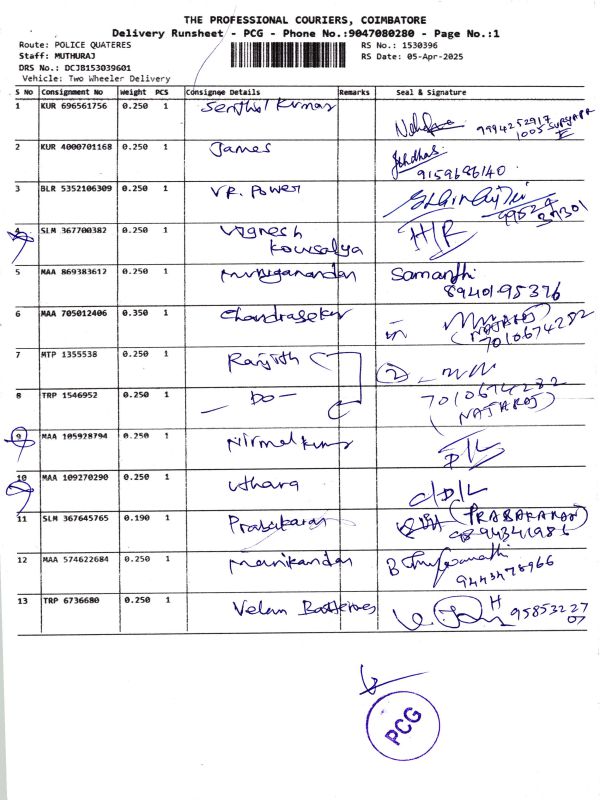 THE PROFESSIONAL COURIERS, COIMBATORE
Delivery Runsheet - PCG - Phone No.:9047080280 - Page No.:1
Route: POLICE QUATERES
RS No.: 1530396
Staff: MUTHURAJ
RS Date: 05-Apr-2025
DRS No.: DCJB153039601
Vehicle: Two Wheeler Delivery
S NO Consignment No Weight PCS Consignee Details Remarks Seal & Signature
1 KUR 696561756 0.250 1 Senthil Kumar
9994252917
1005
2 KUR 4000701168 0.250 1 James
9159686140
3 BLR 5352106309 0.250 1 VR. Power
4 SLM 367700382 0.250 1 Vignesh Kowsalya H/R
5 MAA 869383612 0.250 1 Muruganandan Samanthi
8940195376
6 MAA 705012406 0.350 1 Chandrasekar
(NATARAJ)
7010674282
7 MTP 1355538 0.250 1 Ranjith 2
8 TRP 1546952 0.250 1 — DO — 7010674282
(NATARAJ)
9 MAA 105928794 0.250 1 Nirmal Kumar D/L
10 MAA 109270290 0.250 1 Uthara C/D/L
11 SLM 367645765 0.190 1 Prabakaran (PRABAKARAN)
9894341986
12 MAA 574622684 0.250 1 Manikandan B
9443478966
13 TRP 6736680 0.250 1 Velan Batteries
9585322707
PCG